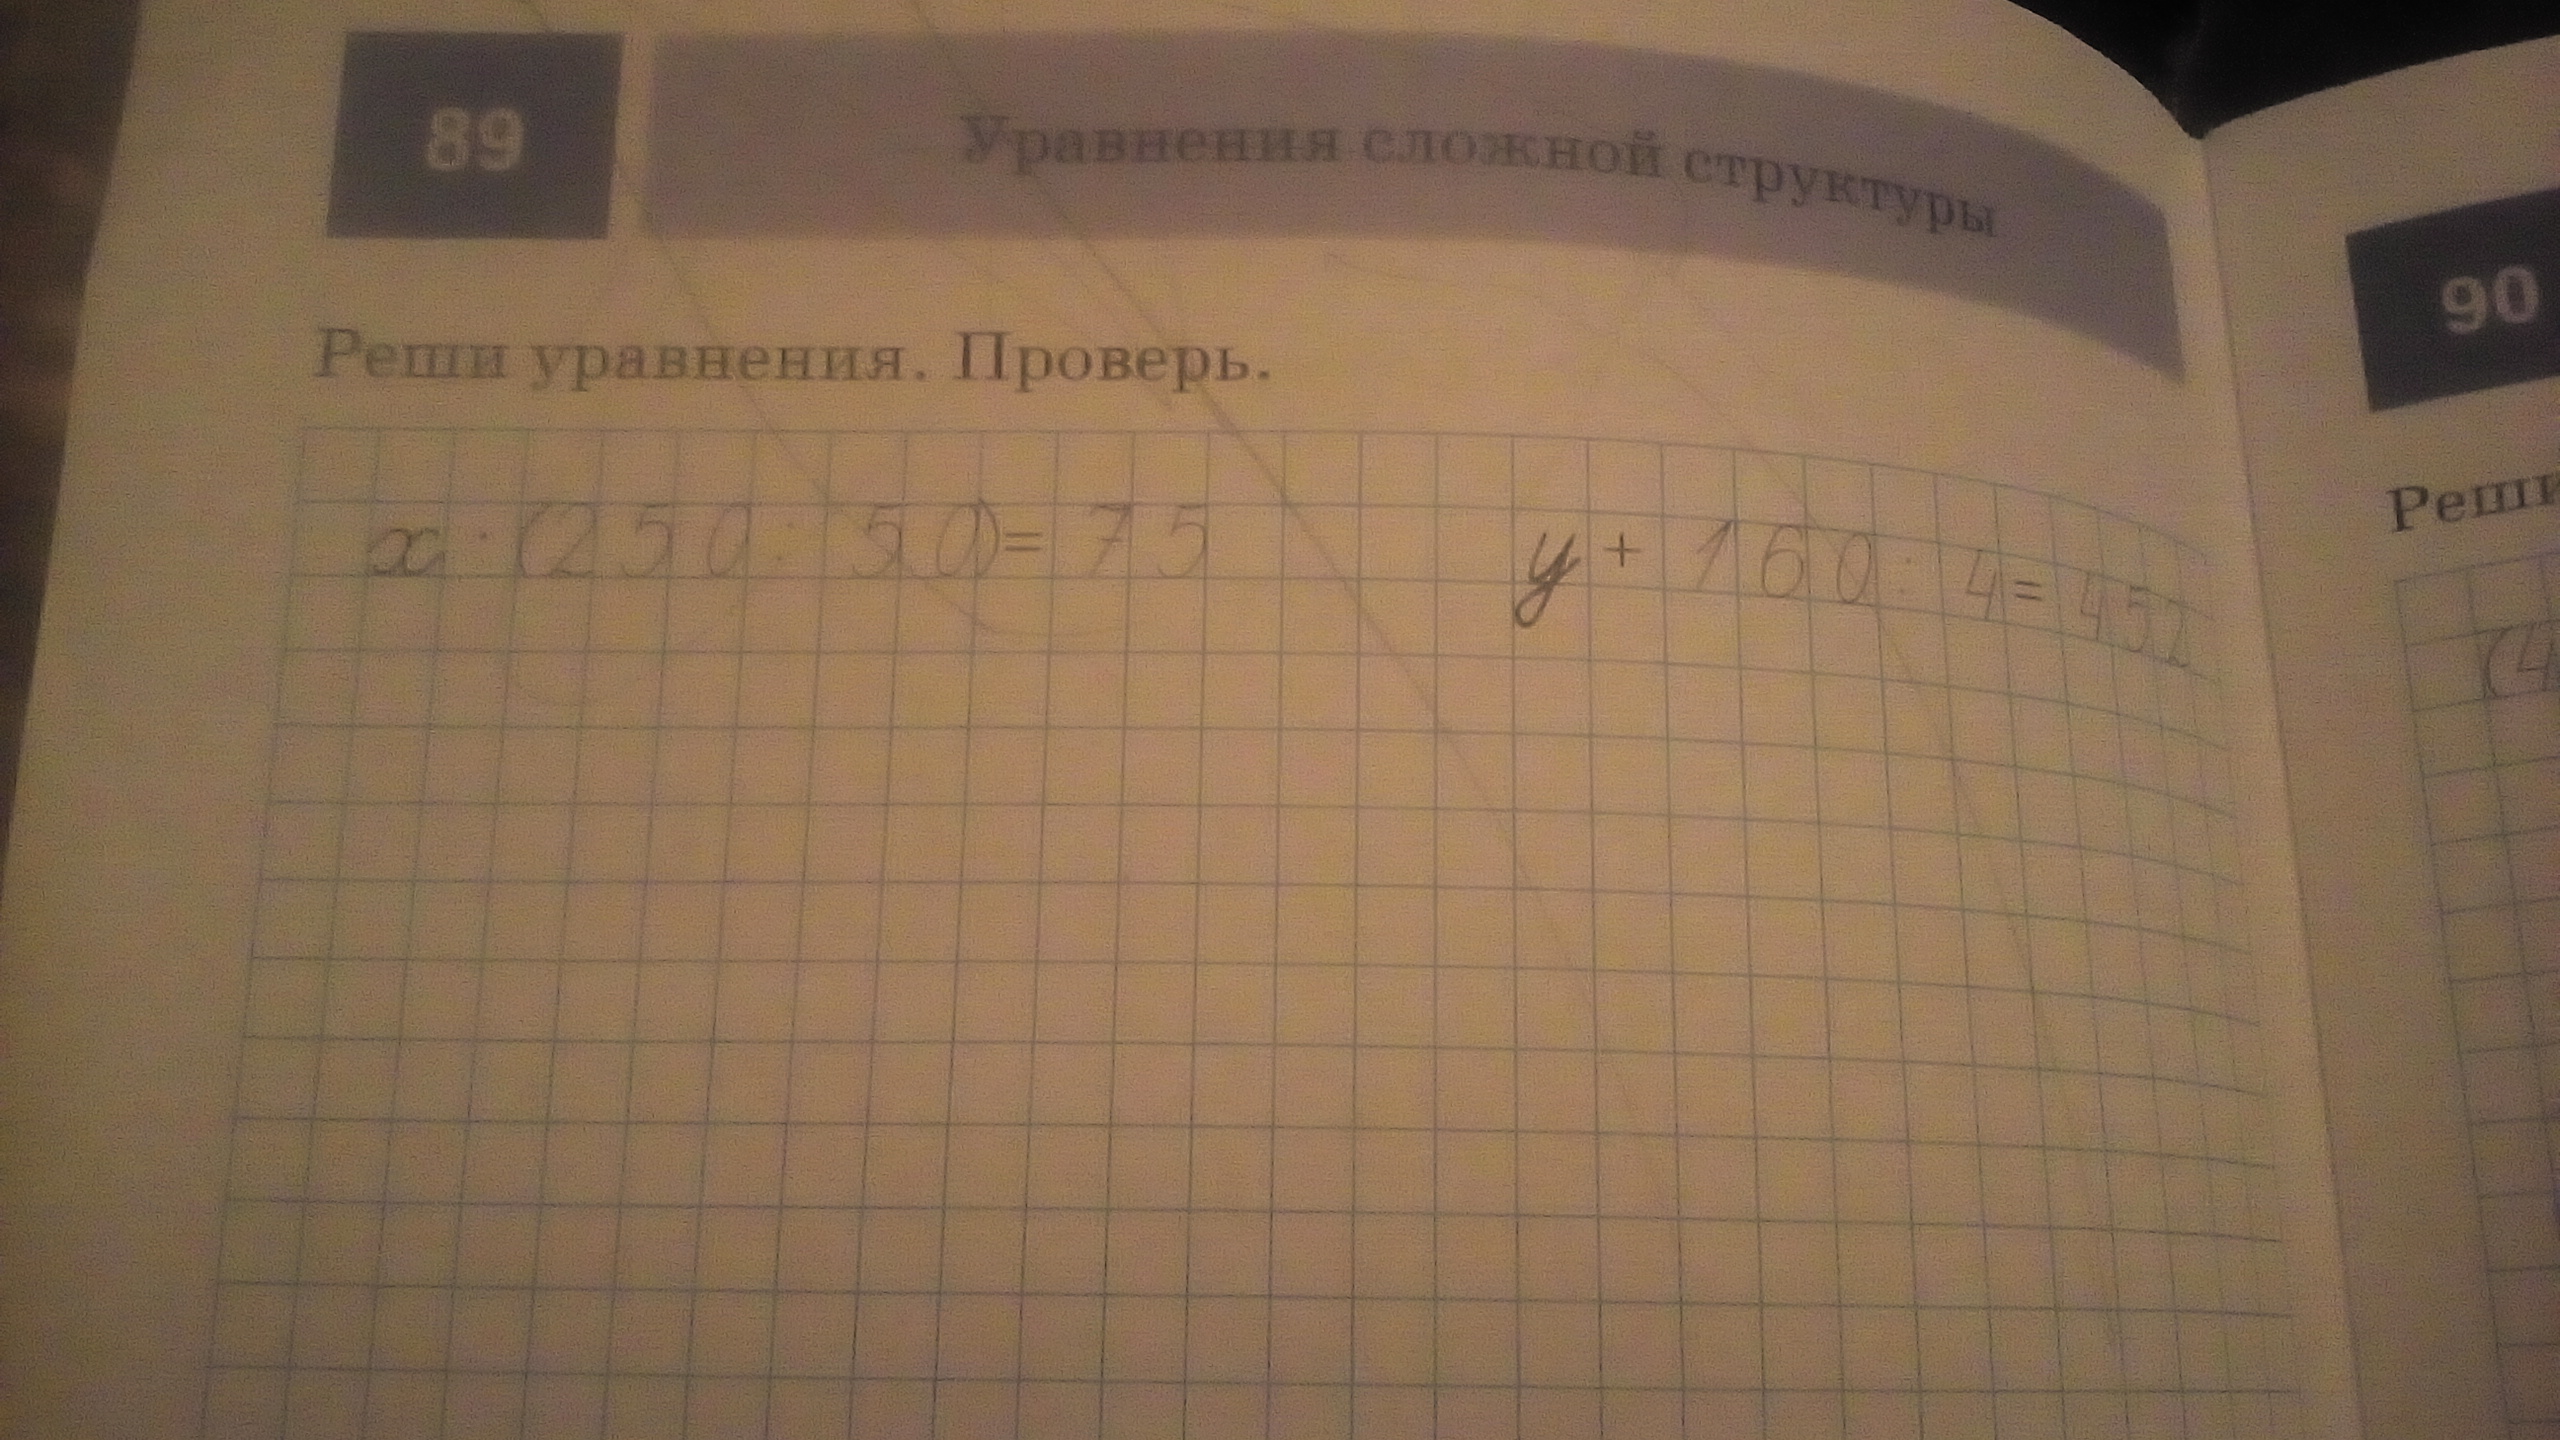 89
Уравнения сложной структуры
Реши уравнения. Проверь.
x · (250 : 50) = 75
y + 160 : 4 = 452
90
Реши
(4